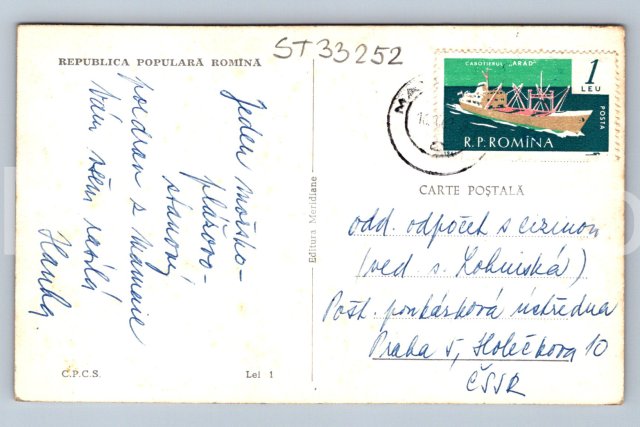 ST33252
REPUBLICA POPULARĂ ROMÎNĂ
Jeden mořsko-
plážovo-
stanový
pozdrav z Mamaie
Vám všem zasílá
Hanka
C.P.C.S.
Lei 1
Editura Meridiane
CABOTIERUL „ARAD"
1
LEU
POSTA
R.P. ROMÎNA
CARTE POȘTALĂ
odd. odpočet s cizinou
(ved. s.
Pošt. ústředna
Praha 5, Holečkova 10
ČSSR